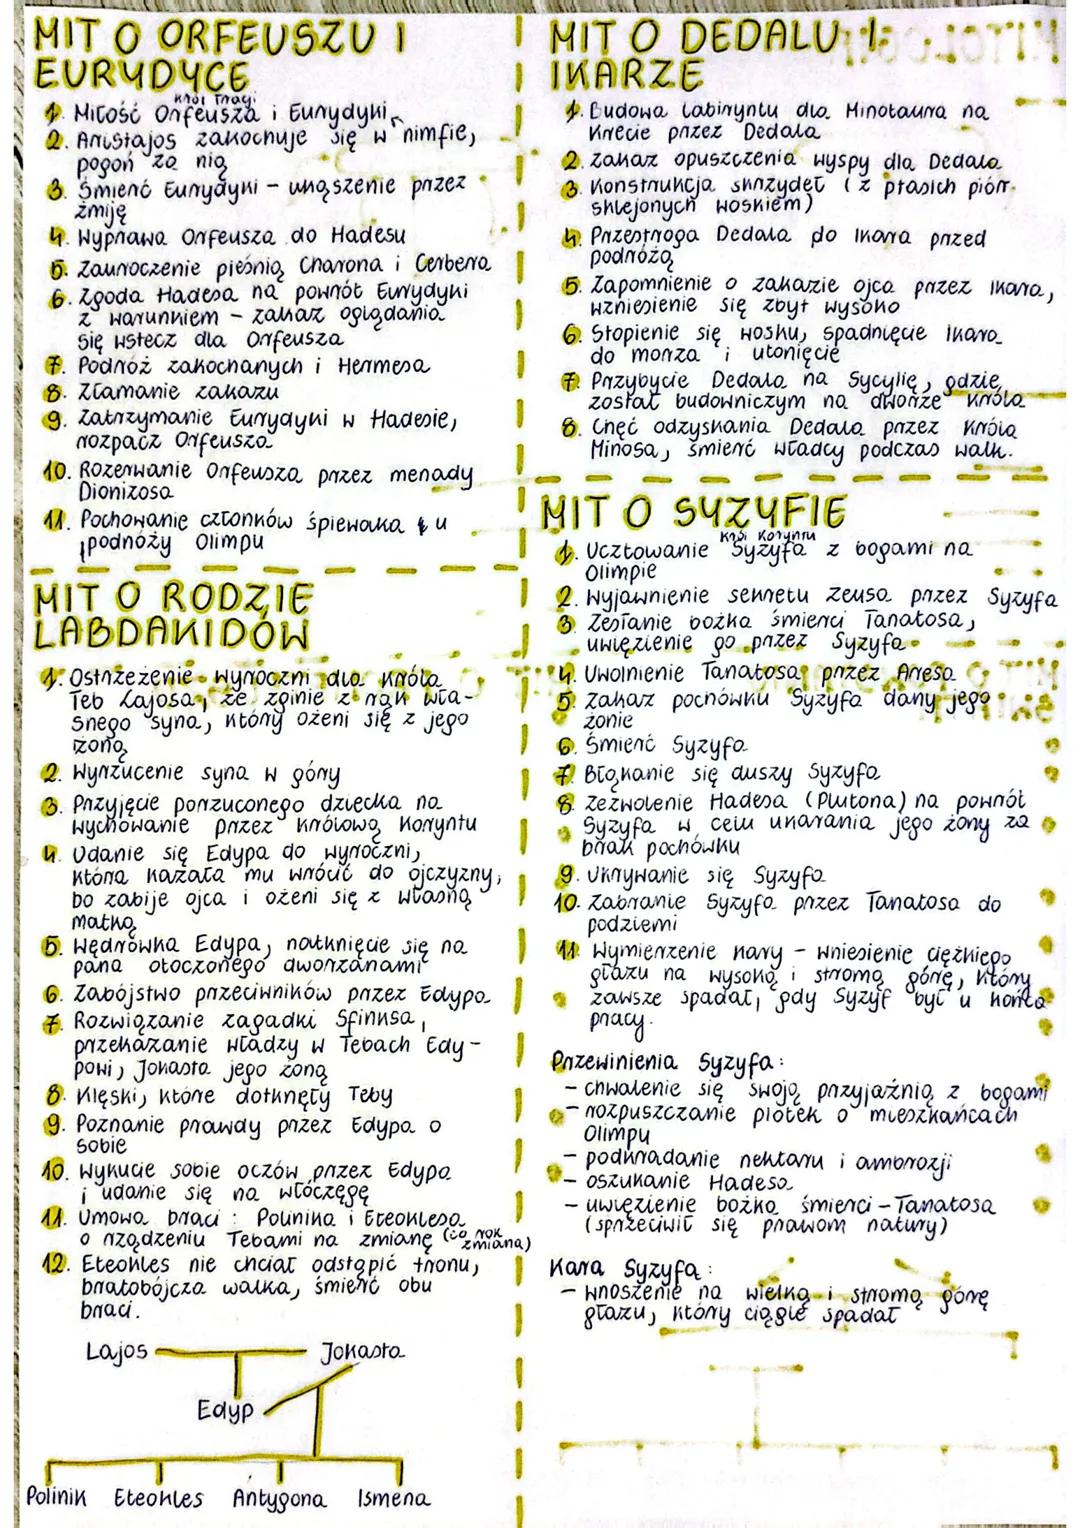 MIT O ORFEUSZU I
EURYDYCE
król Tracji
1. Miłość Orfeusza i Eurydyki
2. Aristajos zakochuje się w nimfie,
pogoń za nią
3. Śmierć Eurydyki - ukąszenie przez
żmiję
4. Wyprawa Orfeusza do Hadesu
5. Zauroczenie pieśnią Charona i Cerbera
6. Zgoda Hadesa na powrót Eurydyki
z warunkiem - zakaz oglądania
się wstecz dla Orfeusza
7. Podróż zakochanych i Hermesa
8. Złamanie zakazu
9. Zatrzymanie Eurydyki w Hadesie,
rozpacz Orfeusza
10. Rozerwanie Orfeusza przez menady
Dionizosa
11. Pochowanie członków śpiewaka u
podnóży Olimpu
MIT O RODZIE
LABDAKIDÓW
1. Ostrzeżenie wyroczni dla króla
Teb Lajosa, że zginie z rąk wła-
snego syna, który ożeni się z jego
żoną
2. Wyrzucenie syna w góry
3. Przyjęcie porzuconego dziecka na
wychowanie przez królową Koryntu
4. Udanie się Edypa do wyroczni,
która kazała mu wrócić do ojczyzny,
bo zabije ojca i ożeni się z własną
matką
5. Wędrówka Edypa, natknięcie się na
pana otoczonego dworzanami
6. Zabójstwo przeciwników przez Edypa
7. Rozwiązanie zagadki Sfinksa,
przekazanie władzy w Tebach Edy-
powi, Jokasta jego żoną
8. Klęski, które dotknęły Teby
9. Poznanie prawdy przez Edypa o
sobie
10. Wykucie sobie oczów przez Edypa
i udanie się na włóczęgę
11. Umowa braci: Polinika i Eteoklesa
o rządzeniu Tebami na zmianę (co rok
zmiana)
12. Eteokles nie chciał odstąpić tronu,
bratobójcza walka, śmierć obu
braci.
Lajos Jokasta
Edyp
Polinik Eteokles Antygona Ismena
MIT O DEDALU I
IKARZE
1. Budowa labiryntu dla Minotaura na
Krecie przez Dedala
2. zakaz opuszczenia wyspy dla Dedala
3. Konstrukcja skrzydeł (z ptasich piór
sklejonych woskiem)
4. Przestroga Dedala do Ikara przed
podróżą
5. Zapomnienie o zakazie ojca przez Ikara,
wzniesienie się zbyt wysoko
6. Stopienie się wosku, spadnięcie Ikara
do morza i utonięcie
7. Przybycie Dedala na Sycylię, gdzie
został budowniczym na dworze króla
8. Chęć odzyskania Dedala przez króla
Minosa, śmierć władcy podczas walk.
MIT O SYZYFIE
król Koryntu
1. Ucztowanie Syzyfa z bogami na
Olimpie
2. Wyjawnienie sekretu Zeusa przez Syzyfa
3. Zesłanie bożka śmierci Tanatosa,
uwięzienie go przez Syzyfa
4. Uwolnienie Tanatosa przez Aresa
5. Zakaz pochówku Syzyfa dany jego
żonie
6. Śmierć Syzyfa
7. Błąkanie się duszy Syzyfa
8. Zezwolenie Hadesa (Plutona) na powrót
Syzyfa w celu ukarania jego żony za
brak pochówku
9. Ukrywanie się Syzyfa
10. Zabranie Syzyfa przez Tanatosa do
podziemi
11. Wymierzenie kary - wniesienie ciężkiego
głazu na wysoką i stromą górę, który
zawsze spadał, gdy Syzyf był u końca
pracy.
Przewinienia Syzyfa:
- chwalenie się swoją przyjaźnią z bogami
- rozpuszczanie plotek o mieszkańcach
Olimpu
- podkradanie nektaru i ambrozji
- oszukanie Hadesa
- uwięzienie bożka śmierci - Tanatosa
(sprzeciwił się prawom natury)
Kara Syzyfa:
- wnoszenie na wielką i stromą górę
głazu, który ciągle spadał